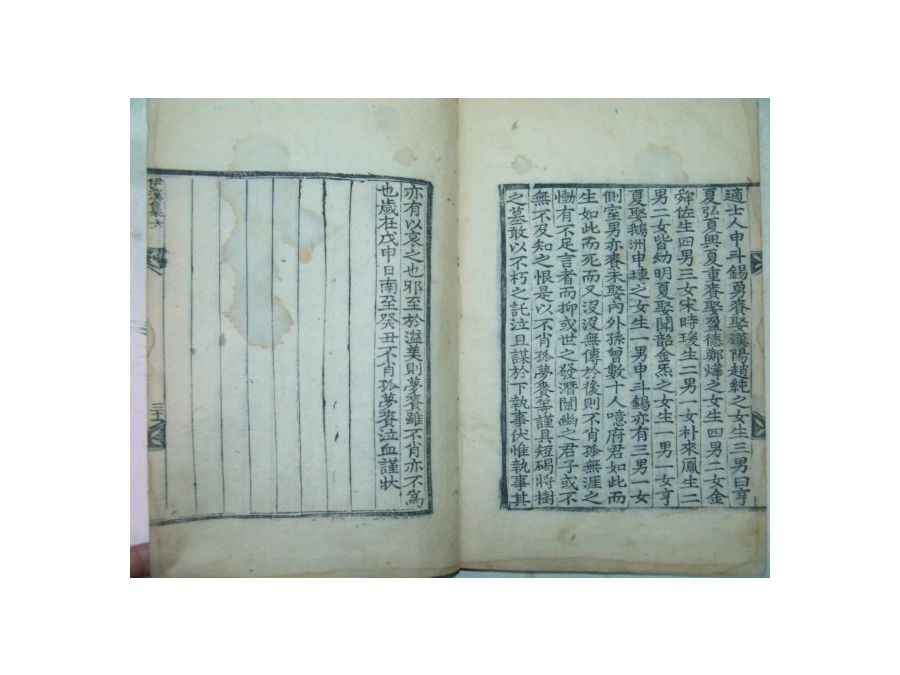 適士人申斗錫勇賚娶漢陽趙純之女生三男曰亨
夏弘夏興夏重賚娶盈德鄭燁之女生四男二女金
舜佐生四男三女宋時瑗生二男一女朴來鳳生二
男二女皆幼明夏娶聞韶金炁之女生一男一女亨
夏娶鵝洲申㙉之女生一男申斗錫亦有三男一女
側室男亦賚未娶內外孫曾數十人噫府君如此而
生如此而死而又沒沒無傳於後則不肖孤無涯之
慟有不足言者而抑或世之發潛闡幽之君子或不
無不及知之恨是以不肖孤夢賚等謹具短碣將樹
之墓敢以不朽之託泣且謀於下執事伏惟執事其
亦有以哀之也邪至於溢美則夢賚雖不肖亦不爲
也歲在戊申日南至癸丑不肖孤夢賚泣血謹狀
伊溪集六
三十